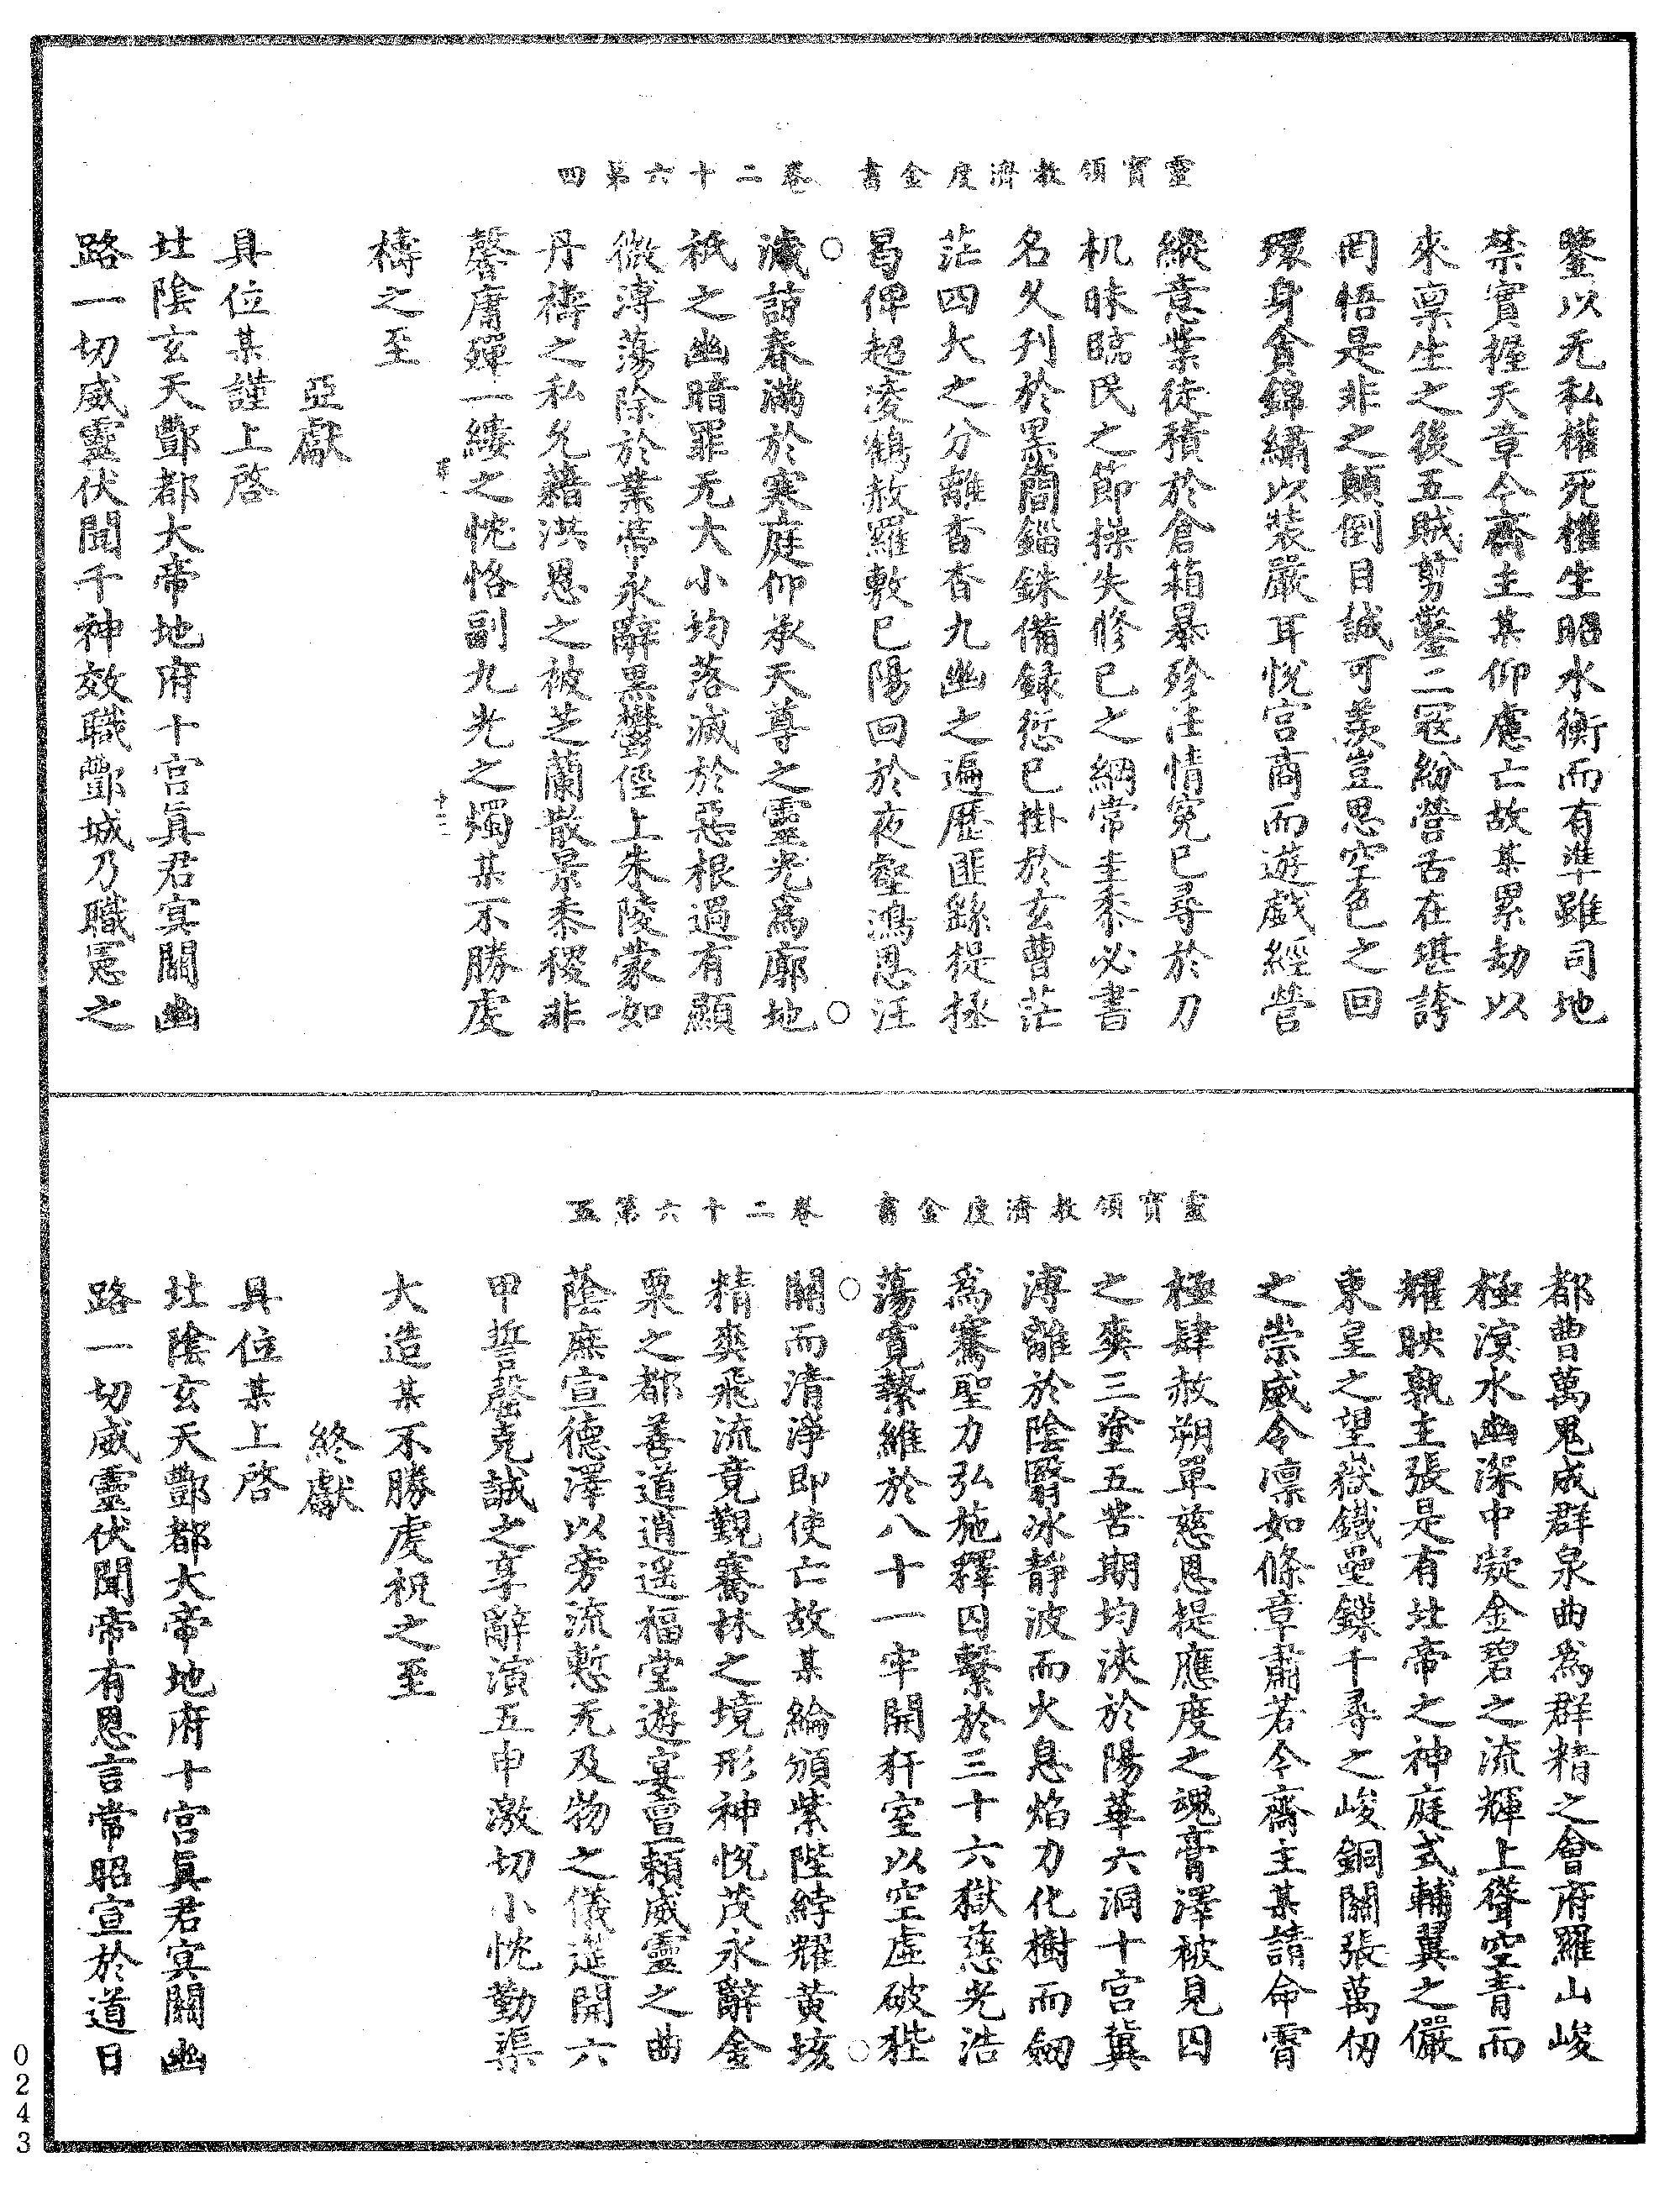 靈寳領教濟度金書　卷二十六第四
鑒以无私權死權生昭水衡而有準雖司地
禁實握天章今齋主某仰慮亡故某累劫以
來禀生之後五賊剪鑿二寇紛營舌在堪誇
罔悟是非之顛倒目誠可羨豈思空色之回
環身貪錦繡以裝嚴耳悅宫商而遊戲經營
縱意業徒積於倉箱暴殄汪情寃已尋於刀
机昧臨民之節操失修已之綱常圭黍必書
名久刋於黑簡錙銖備録愆已掛於玄曹茫
茫四大之分離杳杳九幽之遍歷匪繇提拯
曷俾超凌鶴赦羅敷已陽回於夜壑鴻恩汪
濊詔春滿於寒庭仰承天尊之靈光為廓地
祇之幽暗罪无大小均落滅於惡根過有顯
微溥蕩除於業帶永辭黑欝俓上朱陵蒙如
丹禱之私允藉洪恩之被芝蘭散景黍稷非
馨庸殫一縷之忱恪副九光之燭某不勝虔
禱之至
亞獻
具位某謹上啓
北陰玄天酆都大帝地府十宫眞君㝠關幽
路一切威靈伏聞千神效職酆城乃職憲之
靈寳領教濟度金書　卷二十六第五
都曹萬鬼成群泉曲為群精之會府羅山峻
極溟水幽深中凝金碧之流輝上聳空青而
耀映孰主張是有北帝之神庭式輔翼之儼
東皇之望嶽鐵壘鑠千尋之峻銅關張萬仞
之崇威令凛如條章肅若今齋主某請命霄
極肆赦朔單慈恩提應度之魂膏澤被見囚
之爽三塗五苦期均浹於陽華六洞十宫冀
溥離於陰翳冰靜波而火息焰刀化樹而劒
為騫聖力弘施釋囚繫於三十六獄慈光浩
蕩寛縶維於八十一牢開犴室以空虚破狴
關而清淨即使亡故某綸頒紫陛綍耀黄垓
精爽飛流竟觀騫林之境形神悅茂永辭金
粟之都善道逍遥福堂遊宴亶頼威靈之曲
蔭庶宣德澤以旁流慙无及物之儀莚開六
甲誓罄克誠之享辭演五申激切小忱勤渠
大造某不勝虔祝之至
終獻
具位某上啓
北陰玄天酆都大帝地府十宫眞君㝠關幽
路一切威靈伏聞帝有恩言常昭宣於道日
0243